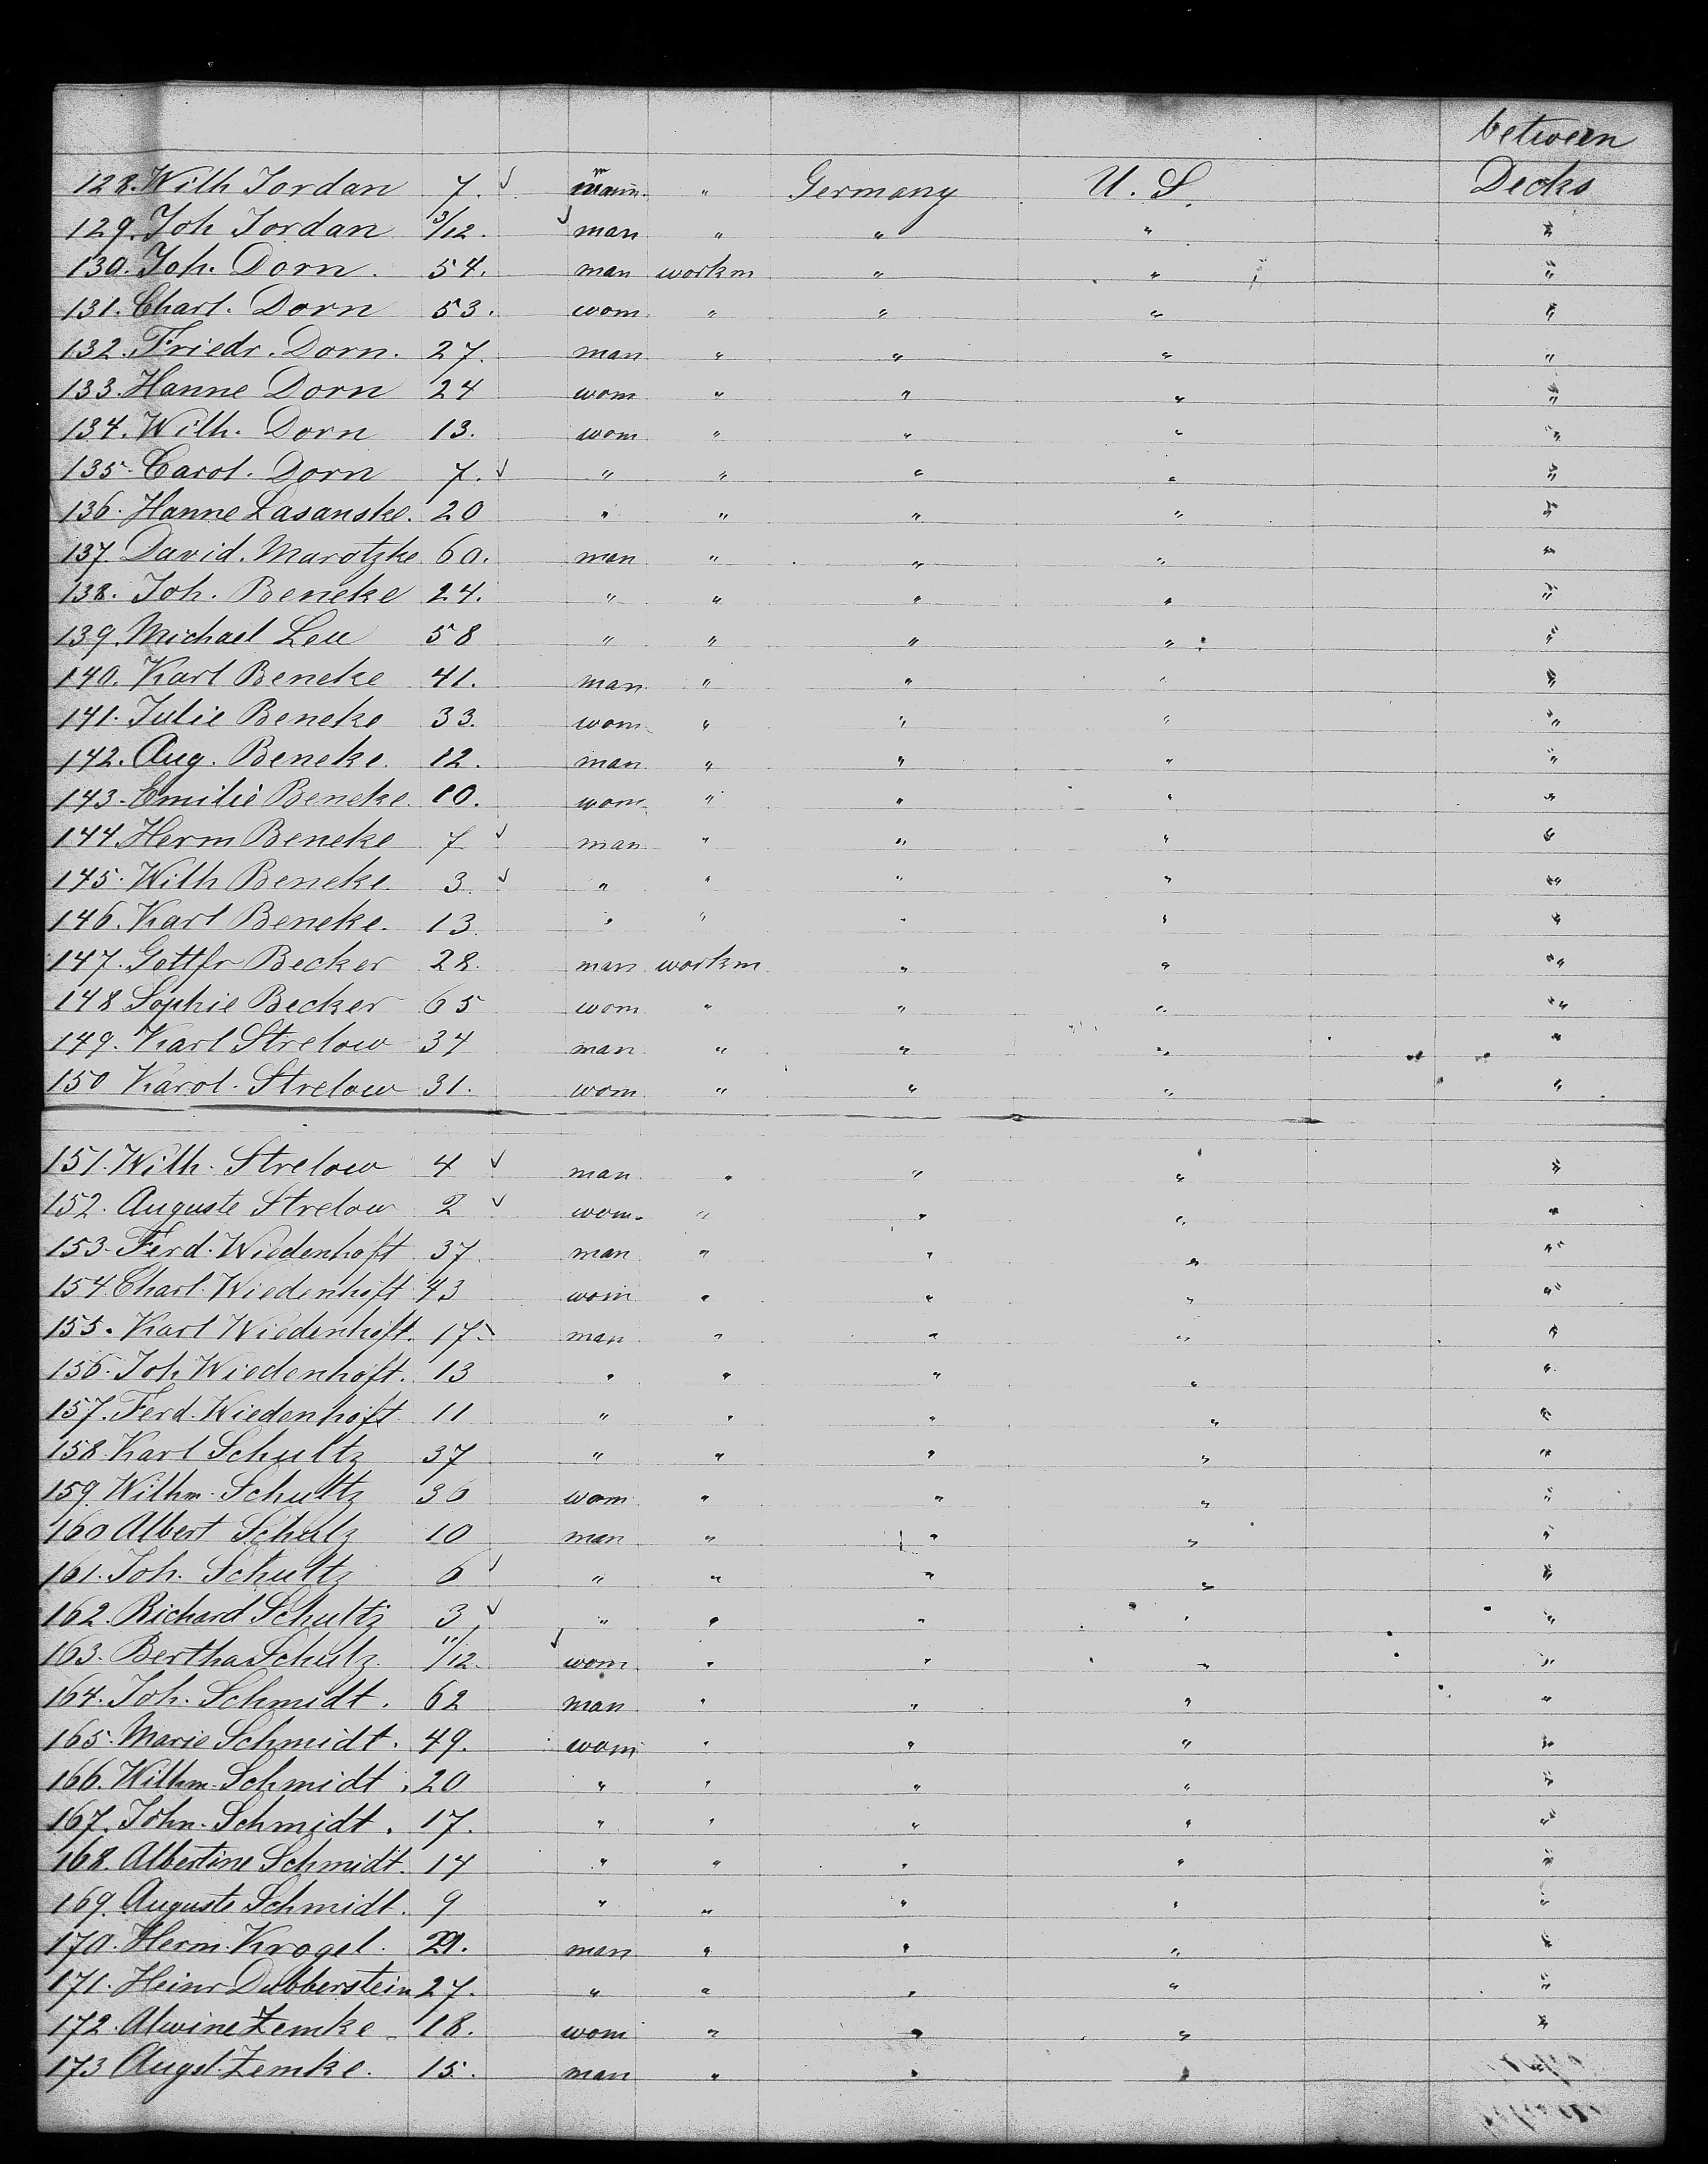 between
128. Wilh Jordan 7. man " Germany U. S. Decks
129. Joh Jordan 3/12. man " " " "
130. Joh. Dorn. 54. man workm " " "
131. Charl. Dorn 53. wom. " " " "
132. Friedr. Dorn. 27. man " " " "
133. Hanne Dorn 24 wom " " " "
134. Wilh. Dorn 13. wom " " " "
135. Carol. Dorn 7. " " " " "
136. Hanne Lasanske. 20 " " " " "
137. David. Marotzke 60. man " " " "
138. Joh. Beneke 24. " " " " "
139. Michael Leu 58 " " " " "
140. Karl Beneke 41. man " " " "
141. Julie Beneke 33. wom " " " "
142. Aug. Beneke. 12. man " " " "
143. Emilie Beneke. 10. wom " " " "
144. Herm Beneke 7 man " " " "
145. Wilh Beneke. 3. " " " " "
146. Karl Beneke. 13 " " " " "
147. Gottfr Becker 28. man workm " " "
148 Sophie Becker 65 wom " " " "
149. Karl Strelow 34 man " " " "
150 Karol. Strelow 31. wom " " " "
151. Wilh. Strelow 4 man " " " "
152. Auguste Strelow 2 wom. " " " "
153. Ferd. Wiedenhoft 37 man " " " "
154 Charl. Wiedenhoft 43 wom " " " "
155. Karl Wiedenhoft. 17. man " " " "
156. Joh Wiedenhoft. 13 " " " " "
157. Ferd. Wiedenhoft 11 " " " " "
158. Karl Schultz 37 " " " " "
159. Wilhm. Schultz 30 wom " " " "
160 Albert Schulz 10 man " " " "
161. Joh. Schultz 6 " " " " "
162. Richard Schultz 3 " " " " "
163. Bertha Schulz 11/12. wom " " " "
164. Joh. Schmidt. 62 man " " " "
165. Marie Schmidt. 49. wom " " " "
166. Wilhm. Schmidt. 20 " " " " "
167. John. Schmidt. 17. " " " " "
168. Albertine Schmidt. 14 " " " " "
169. Auguste Schmidt. 9 " " " " "
170. Herm. Krogel. 29. man " " " "
171. Heinr Dubberstein 27. " " " " "
172. Alwine Zemke 18. wom " " " "
173 Augst. Zemke. 15. man " " "